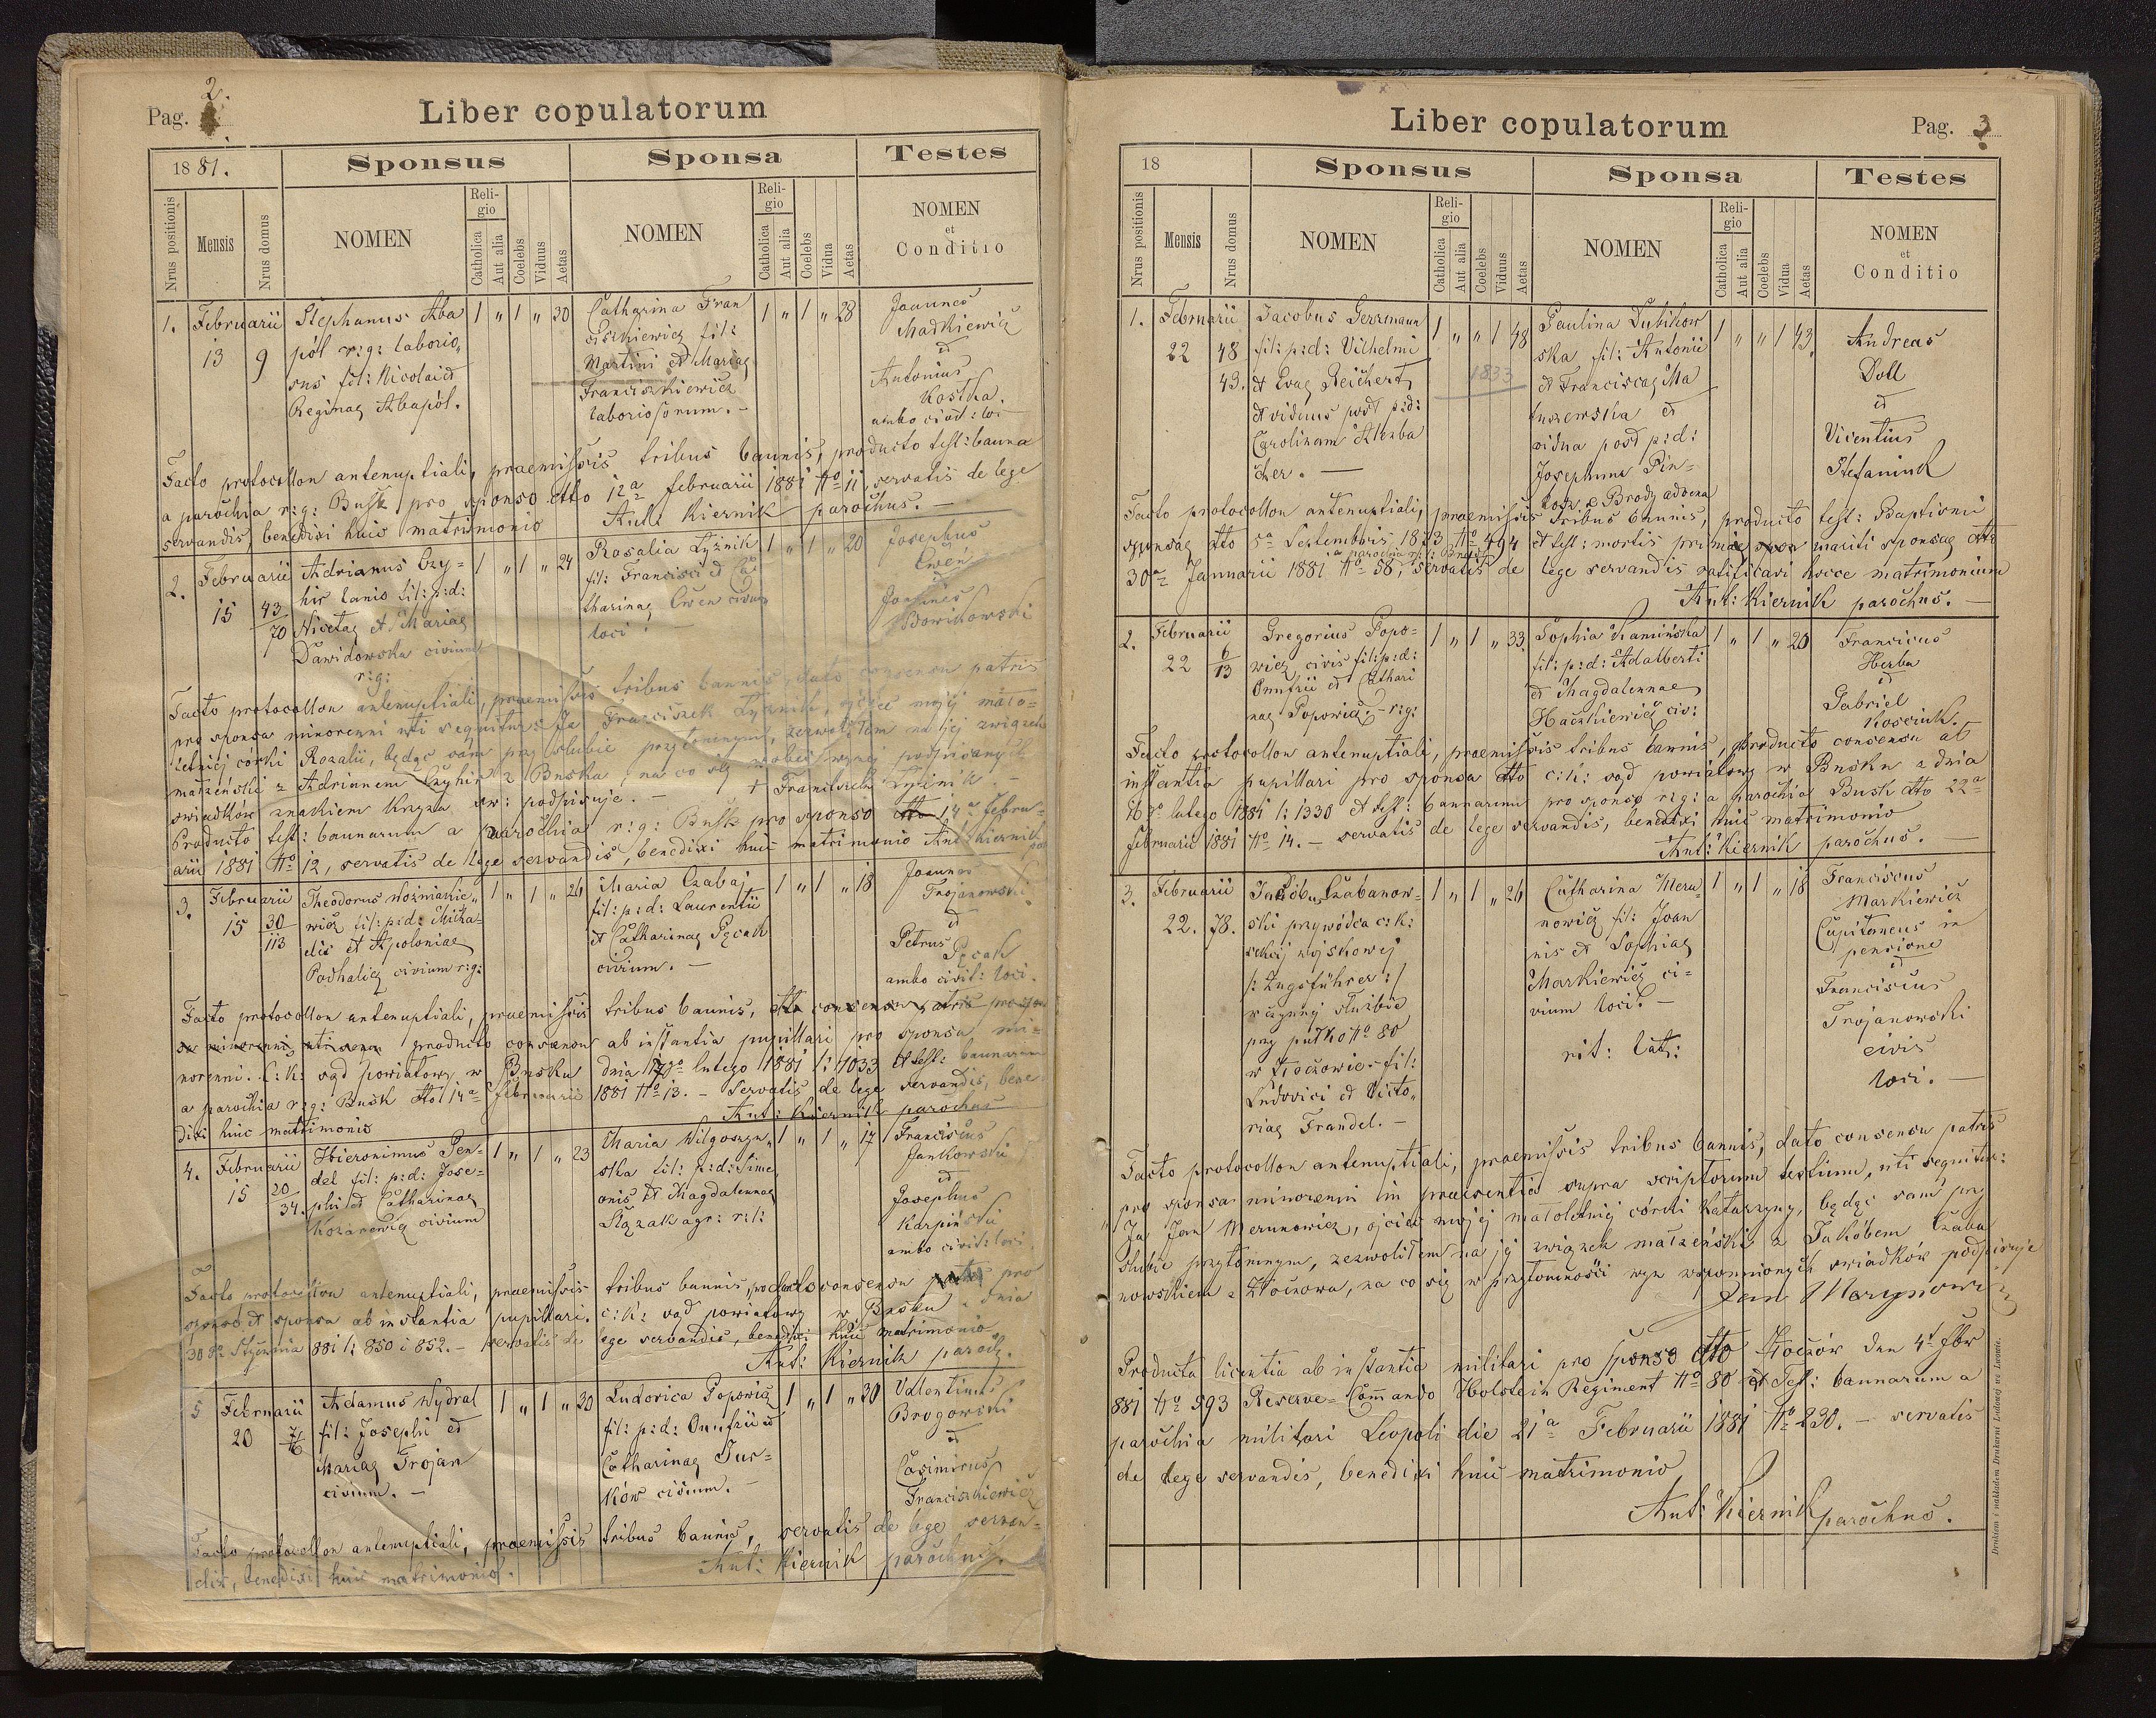 Pag. 2.
Liber copulatorum
1881.
Sponsus
Sponsa
Testes
Nrus positionis
Mensis
Nrus domus
NOMEN
Religio
Catholica
Aut alia
Coelebs
Viduus
Aetas
NOMEN
Religio
Catholica
Aut alia
Coelebs
Vidua
Aetas
NOMEN
et
Conditio
1. Februarii
13 9
Stephanus Aba
pól r: g: laborio„
sus fil: Nicolai et
Reginae Abapól.
1 „ 1 „ 30
Catharina Fran
ciszkiewicz fil:
Martini et Mariae
Franciszkiewicz
laboriosorum. -
1 „ 1 „ 28
Joannes
Madkiewicz
et
Antonius
Kostka.
ambo civit: loci
Facto protocollon antenuptiali, praemissis tribus bannis, producto test: banna
a parochia r: g: Busk pro sponso dtto 12a februarii 1881 No 11, servatis de lege
servandis, benedixi huic matrimonio
Ant: Kiernik parochus. -
2. Februarii
15 43/70
Adrianus Czy=
hir lanio fil: p: d:
Nicetae et Mariae
Dawidowska civium
r: g:
1 „ 1 „ 24
Rosalia Łyżnik
fil: Francisci et Ca
tharinae Cwen civium
loci. -
1 „ 1 „ 20
Josephus
Cweń
Joannes
Bowikowski
Facto protocollon antenuptiali, praemissis tribus bannis, dato consensu patris
pro sponsa minorenni uti sequitur: Ja Franciszek Łyżnik, ojciec mojej mało=
letniej córki Rozalii, będąc sam przy ślubie przytomnym, zezwoliłem na jej związek
małżeński z Adrianem Czyhir z Buska, na co się wobec wyżej podpisanych
świadków znakiem krzyża św: podpisuje. - + Franciszek Łyżnik. -
Producto test: bannarum a parochia r: g: Busk pro sponso dtto 14a febru=
arii 1881 No 12, servatis de lege servandis, benedixi huic matrimonio Ant: Kiernik par
3. Februarii
15 30/113
Theodorus Woźniakie„
wicz fil: p: d: Micha=
elis et Apoloniae
Podhalicz civium r: g:
1 „ 1 „ 26
Maria Czabaj
fil: p: d: Laurentii
et Catharinae Pęcak
civium. -
1 „ 1 „ 18
Joannes
Trojanowski
et
Petrus
Pęcak
ambo civit: loci.
Facto protocollon antenuptiali, praemissis tribus bannis, dto consensu patris pro spon
sa minorenni producto consensu ab instantia pupillari pro sponsa mi=
norenni. C: k: sąd powiatowy w Busku dnia lutego 1881 l: 1033 et test: bannarum
a parochia r: g: Busk dtto 14a februarii 1881 No 13. - Servatis de lege servandis, bene
dixi huic matrimonio
Ant: Kiernik parochus
4. Februarii
15 20/34.
Hieronimus Pen=
del fil: p: d: Jose=
phi et Catharinae
Kozarewicz civium
1 „ 1 „ 23
Maria Wilgoszyn„
ska fil: p: d: Sime
onis et Magdalennae
Ślązak agr: r: l:
1 „ 1 „ 17
Franciscus
Jankowski
et
Josephus
Karpiński
ambo civit: loci
Facto protocollon antenuptiali, praemissis tribus bannis, producto consensu pro
sponso et sponsa ab instantia pupillari. c: k: sąd powiatowy w Busku z dnia
30go Stycznia 881 l: 850 i 852. - servatis de lege servandis, benedixi huic matrimonio
Ant: Kiernik paroch.
5 Februarii
20
Adamus Wydrat
fil: Josephi et
Mariae Trojan
civium. -
1 „ 1 „ 30
Ludovica Popowicz
fil: p: d: Onufrii et
Catharinae Jur=
ków civium. -
1 „ 1 „ 30
Valentinus
Brogowski
et
Casimirus
Franciszkiewicz
Facto protocollon antenuptiali, praemissis tribus bannis, servatis de lege servan=
dis, benedixi huic matrimonio.
Ant: Kiernik parochus.
Liber copulatorum
Pag. 3
18
Sponsus
Sponsa
Testes
Nrus positionis
Mensis
Nrus domus
NOMEN
Religio
Catholica
Aut alia
Coelebs
Viduus
Aetas
NOMEN
Religio
Catholica
Aut alia
Coelebs
Vidua
Aetas
NOMEN
et
Conditio
1. Februarii
22 48
43.
Jacobus Gerzmann
fil: p: d: Vilhelmi
et Evae Reichert
et viduus post p: d:
Carolinam
cher. -
1 „ „ 1 48
1833
Paulina Dubikow
ska fil: Antonii
et Franciscae Ma
tuszewska et
vidua post p: d:
Josephum Pin=
e Brody advena
1 „ „ 1 43.
Andreas
Doll
et
Vicentius
Stefaniuk
Facto protocollon antenuptiali, praemissis tribus bannis, producto test: Baptismi
sponsae dtto 5a Septembris 1873 No 494 et test: mortis primae mariti sponsae dtto
a parochia r: l: Brody
30a Januarii 1881 No 58, servatis de lege servandis ratificavi hocce matrimonium
Ant: Kiernik parochus. -
2. Februarii
22 6/13
Gregorius Popo=
wicz civis fil: p: d:
Onufrii et Cathari
nae Popowicz. - r: g:
1 „ 1 „ 33.
Sophia Kamińska
fil: p: d: Adalberti
et Magdalennae
Haczkiewicz civ:
1 „ 1 „ 20
Franciscus
Herba
et
Gabriel
Kosciuk. -
Facto protocollon antenuptiali, praemissis tribus bannis, producto consensu ab
instantia pupillari pro sponsa dtto c: k: sąd powiatowy w Busku z dnia
16go lutego 1881 l: 1330 et test: bannarum pro sponso r: g: a parochia Busk dtto 22a
februarii 1881 No 14. - servatis de lege servandis, benedixi huic matrimonio
Ant: Kiernik parochus. -
3. Februarii
22. 78.
Jacobus Czabanow=
ski przywódca c: k:
sekcij wojskowej
/: Zugsführer :/
w czynnej służbie
przy pułko No 80
w Złoczowie - fil:
Ludovici et Victo„
riae Frandel. -
1 „ 1 „ 26
Catharina Meru
nowicz fil: Joan
nis et Sophiae
Markiewicz ci=
vium loci. -
rit: lat:
1 „ 1 „ 18
Franciscus
Markiewicz
Capitaneus in
pensione
et
Franciscus
Trojanowski
civis
loci. -
Facto protocollon antenuptiali, praemissis tribus bannis, dato consensu patris
pro sponsa minorenni in praesentia supra scriptorum testium, uti sequitur:
„Ja Jan Merunowicz, ojciec mojej małoletniej córki Katarzyny, będąc sam przy
ślubie przytomnym, zezwoliłem na jej związek małżeński z Jakóbem Czaba
nowskiem z Złoczowa, na co się w przytomności wyż wspomnionych świadków podpisuje
Jan Merynowicz
Producta licentia ab instantia militari pro sponso dtto Złoczów den 4t Fbr
881 No 593 Reserve=Commando Holstein Regiment No 80 et Test: bannarum a
parochia militari Leopoli die 21a Februarii 1881 No 230. - servatis
de lege servandis, benedixi huic matrimonio
Ant: Kiernik parochus.
Drukiem i nakładem Drukarni Ludowej we Lwowie.